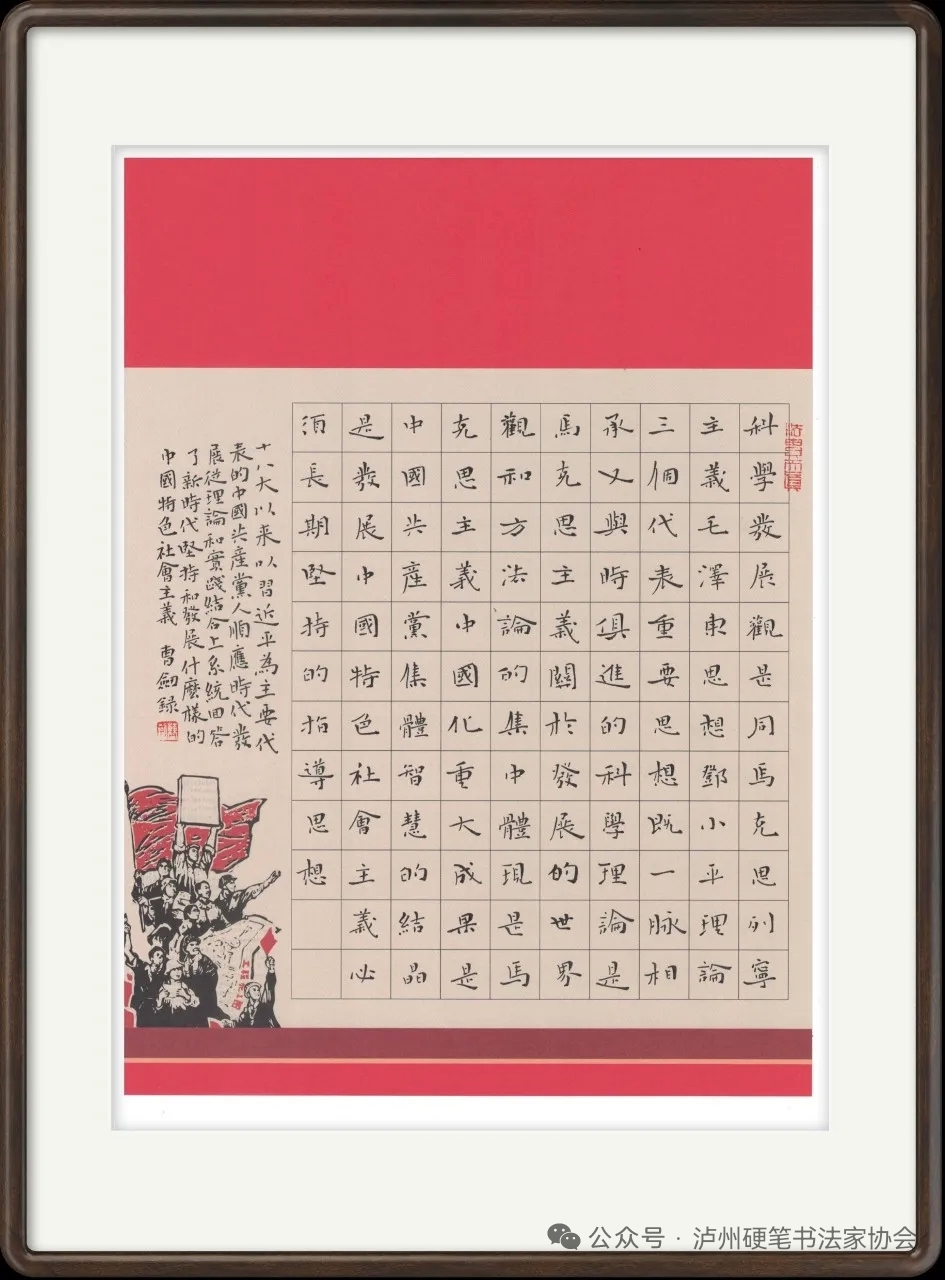 科學發展觀是同馬克思列寧
主義毛澤東思想鄧小平理論
三個代表重要思想既一脈相
承又與時俱進的科學理論是
馬克思主義關於發展的世界
觀和方法論的集中體現是馬
克思主義中國化重大成果是
中國共産黨集體智慧的結晶
是發展中國特色社會主義必
須長期堅持的指導思想
十八大以来以習近平為主要代
表的中國共産黨人順應時代發
展從理論和實踐結合上系統回答
了新時代堅持和發展什麼樣的
中國特色社會主義 曹劍録
公众号 · 泸州硬笔书法家协会